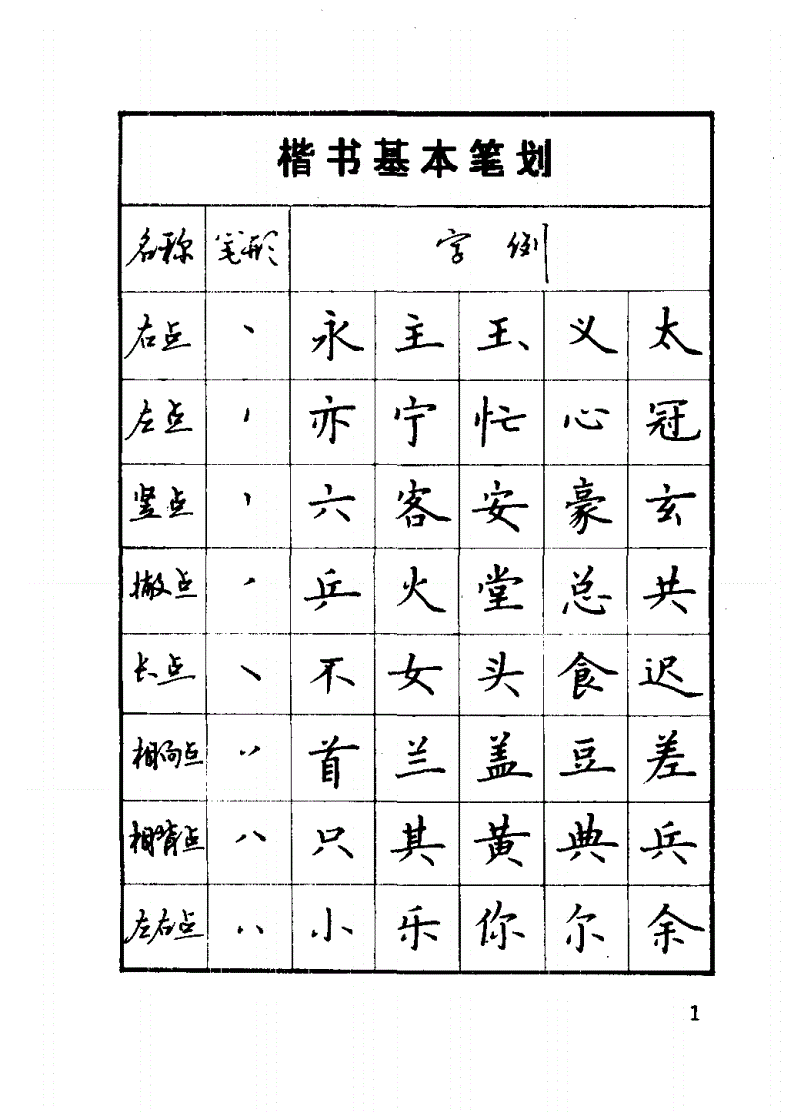 楷书基本笔划
名称 笔形 字例
右点 丶 永 主 玉 义 太
左点 亦 宁 忙 心 冠
竖点 六 客 安 豪 玄
撇点 乒 火 堂 总 共
长点 不 女 头 食 迟
相向点 首 兰 盖 豆 差
相背点 只 其 黄 典 兵
左右点 小 乐 你 尔 余
1